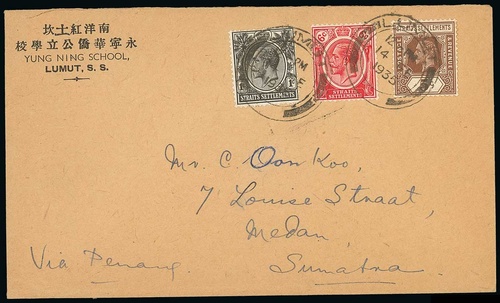 南洋紅土坎
永寧華僑公立學校
YUNG NING SCHOOL,
LUMUT, S. S.
STRAITS SETTLEMENTS
STRAITS
SETTLEMENTS
STRAITS SETTLEMENTS
PM
14
1935
Mr. C. Oon Koo,
7 Louise Straat,
Medan,
Sumatra.
Via Penang.